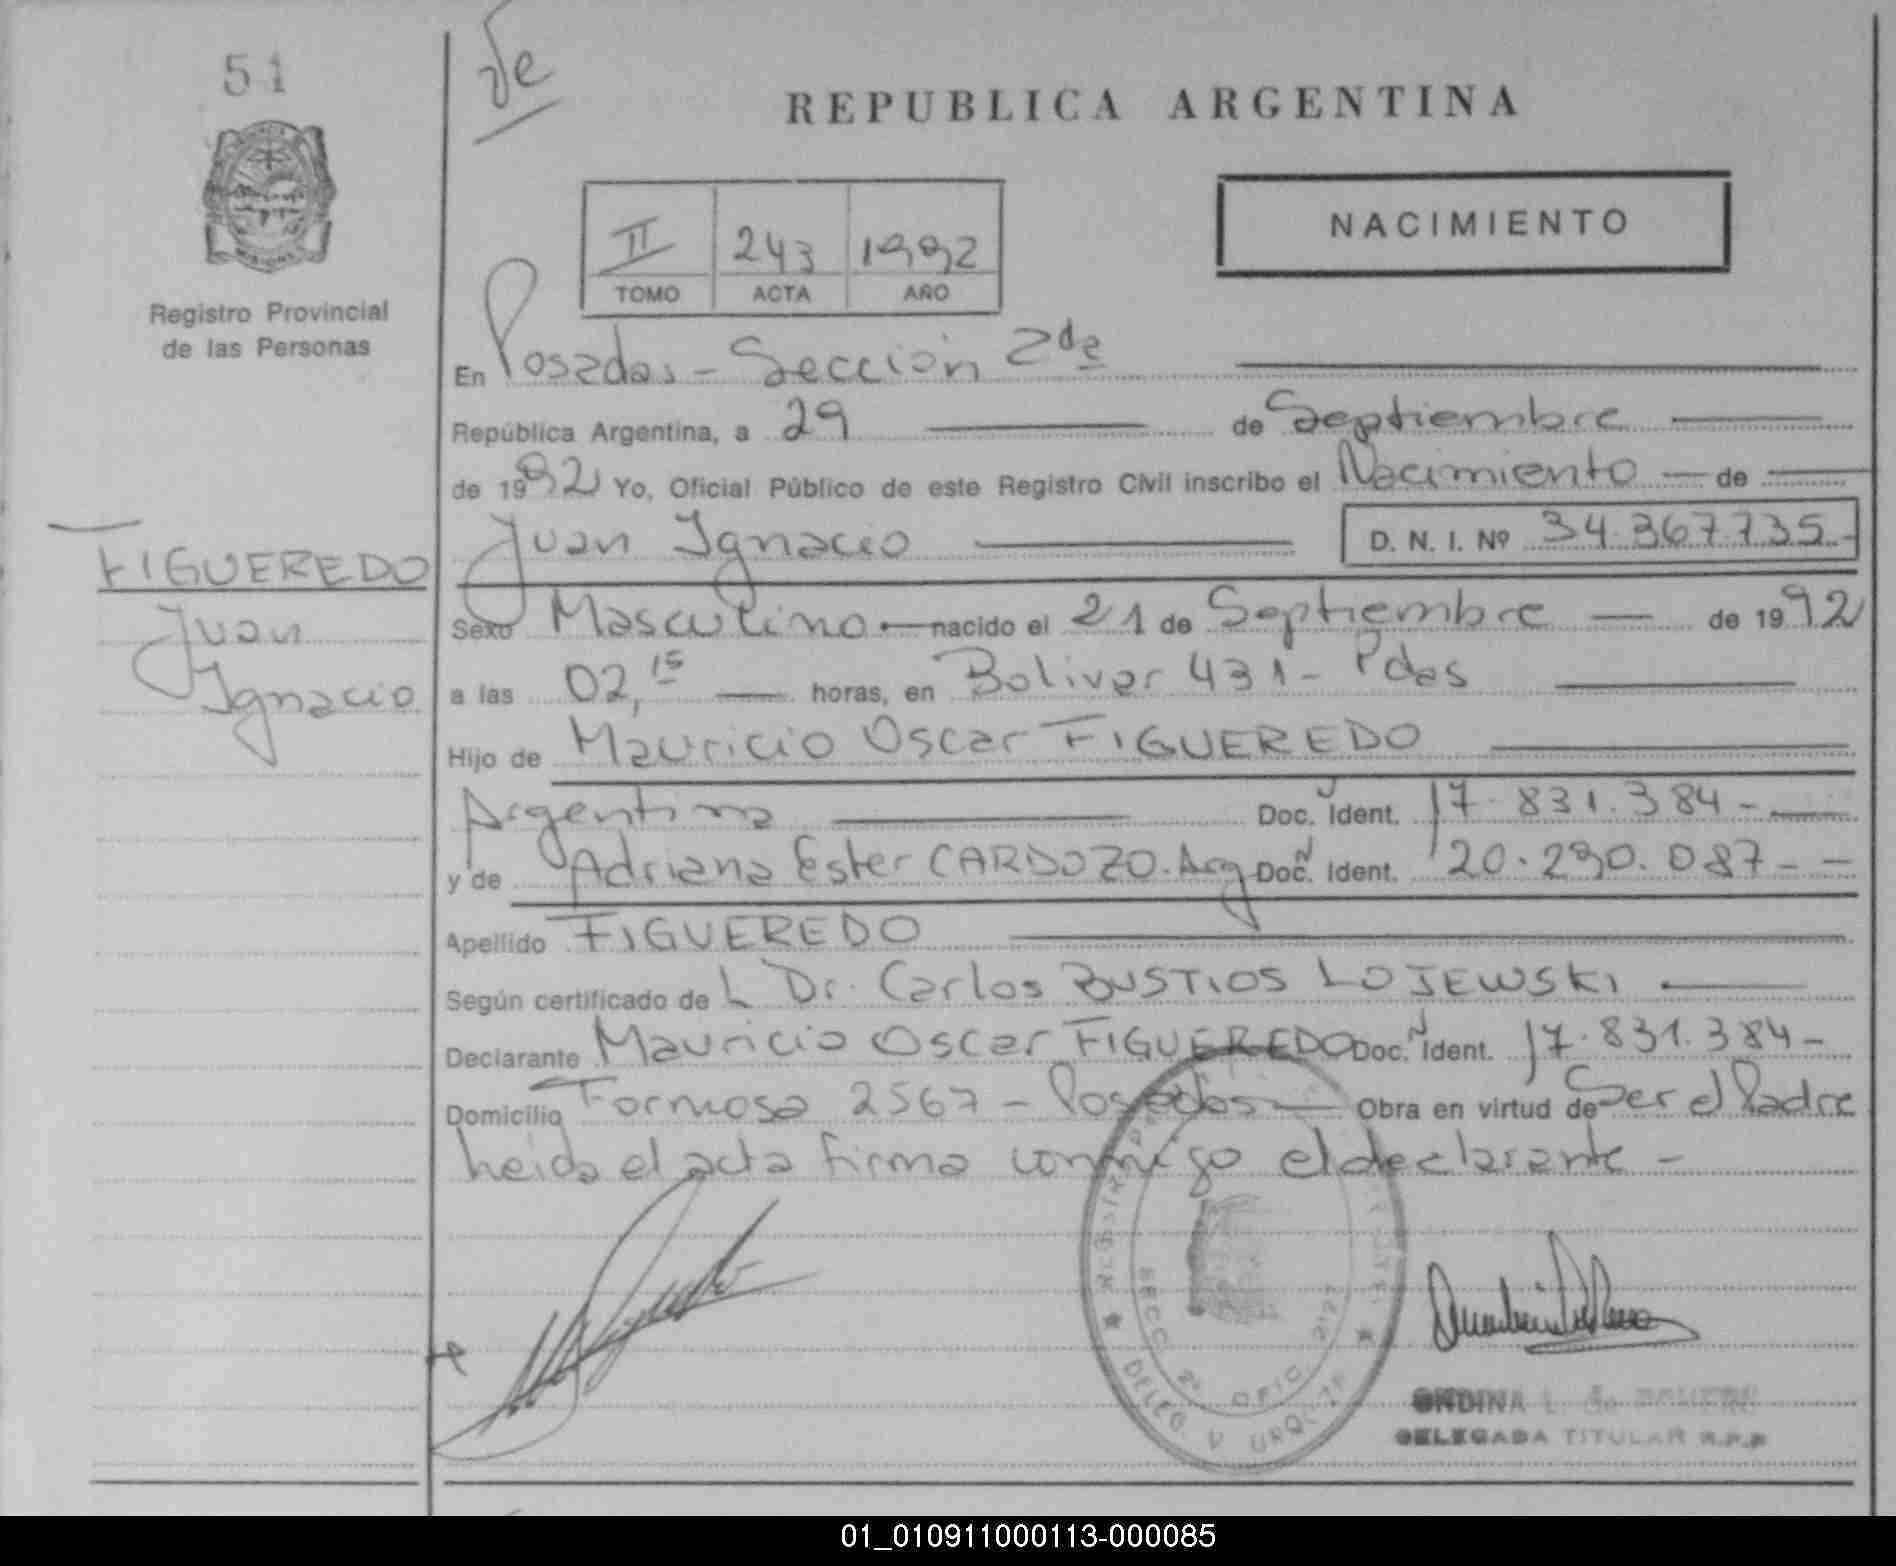 51
de
REPUBLICA ARGENTINA
NACIMIENTO
II 243 1992
TOMO ACTA AÑO
MISIONES
Registro Provincial
de las Personas
En Posadas - Sección 2da
República Argentina, a 29 de Septiembre
de 1992 Yo, Oficial Público de este Registro Civil inscribo el Nacimiento de
Juan Ignacio D. N. I. Nº 34.367.735-
FIGUEREDO
Juan
Ignacio
Sexo Masculino nacido el 21 de Septiembre de 1992
a las 02,15 horas, en Bolivar 431 - Pdas
Hijo de Mauricio Oscar FIGUEREDO
Argentina Doc. Ident. 17.831.384-
y de Adriana Ester CARDOZO. Arg Doc. Ident. 20.290.087-
Apellido FIGUEREDO
Según certificado de L Dr. Carlos BUSTIOS LOJEWSKI
Declarante Mauricio Oscar FIGUEREDO Doc. Ident. 17.831.384-
Domicilio Formosa 2567 - Posadas Obra en virtud de Ser el Padre
Leida el acta firma conmigo el declarante -
SECC. 2ª OFIC.
DELEG. V. URQUIZA
ONDINA L. de ROMERO
DELEGADA TITULAR R.P.P
01_010911000113-000085